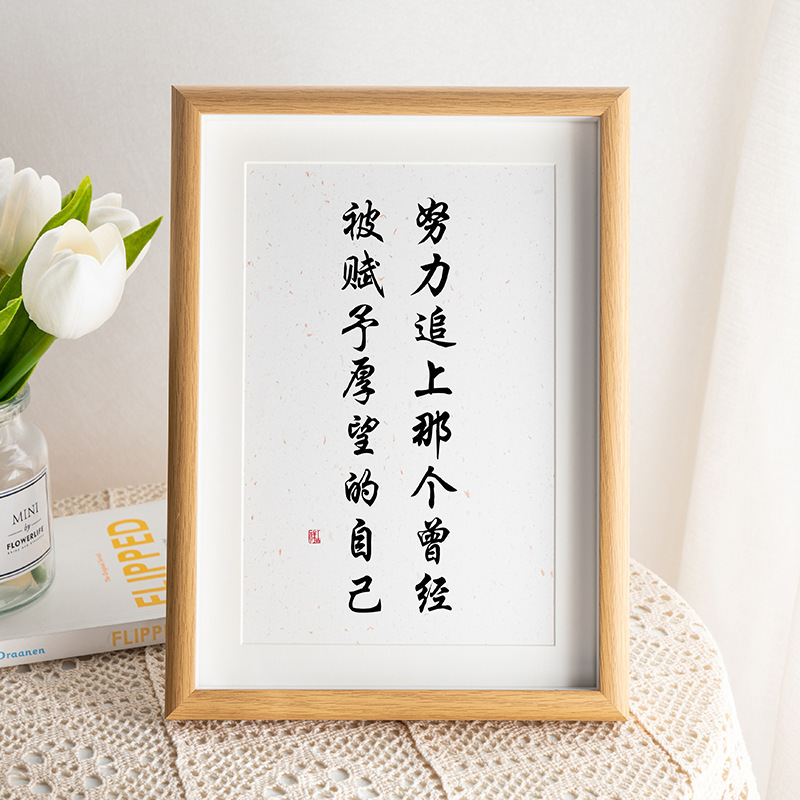 努力追上那个曾经
被赋予厚望的自己
MINI
by
FLOWERLIFE
FLIPPED
FLIPP
Draanen